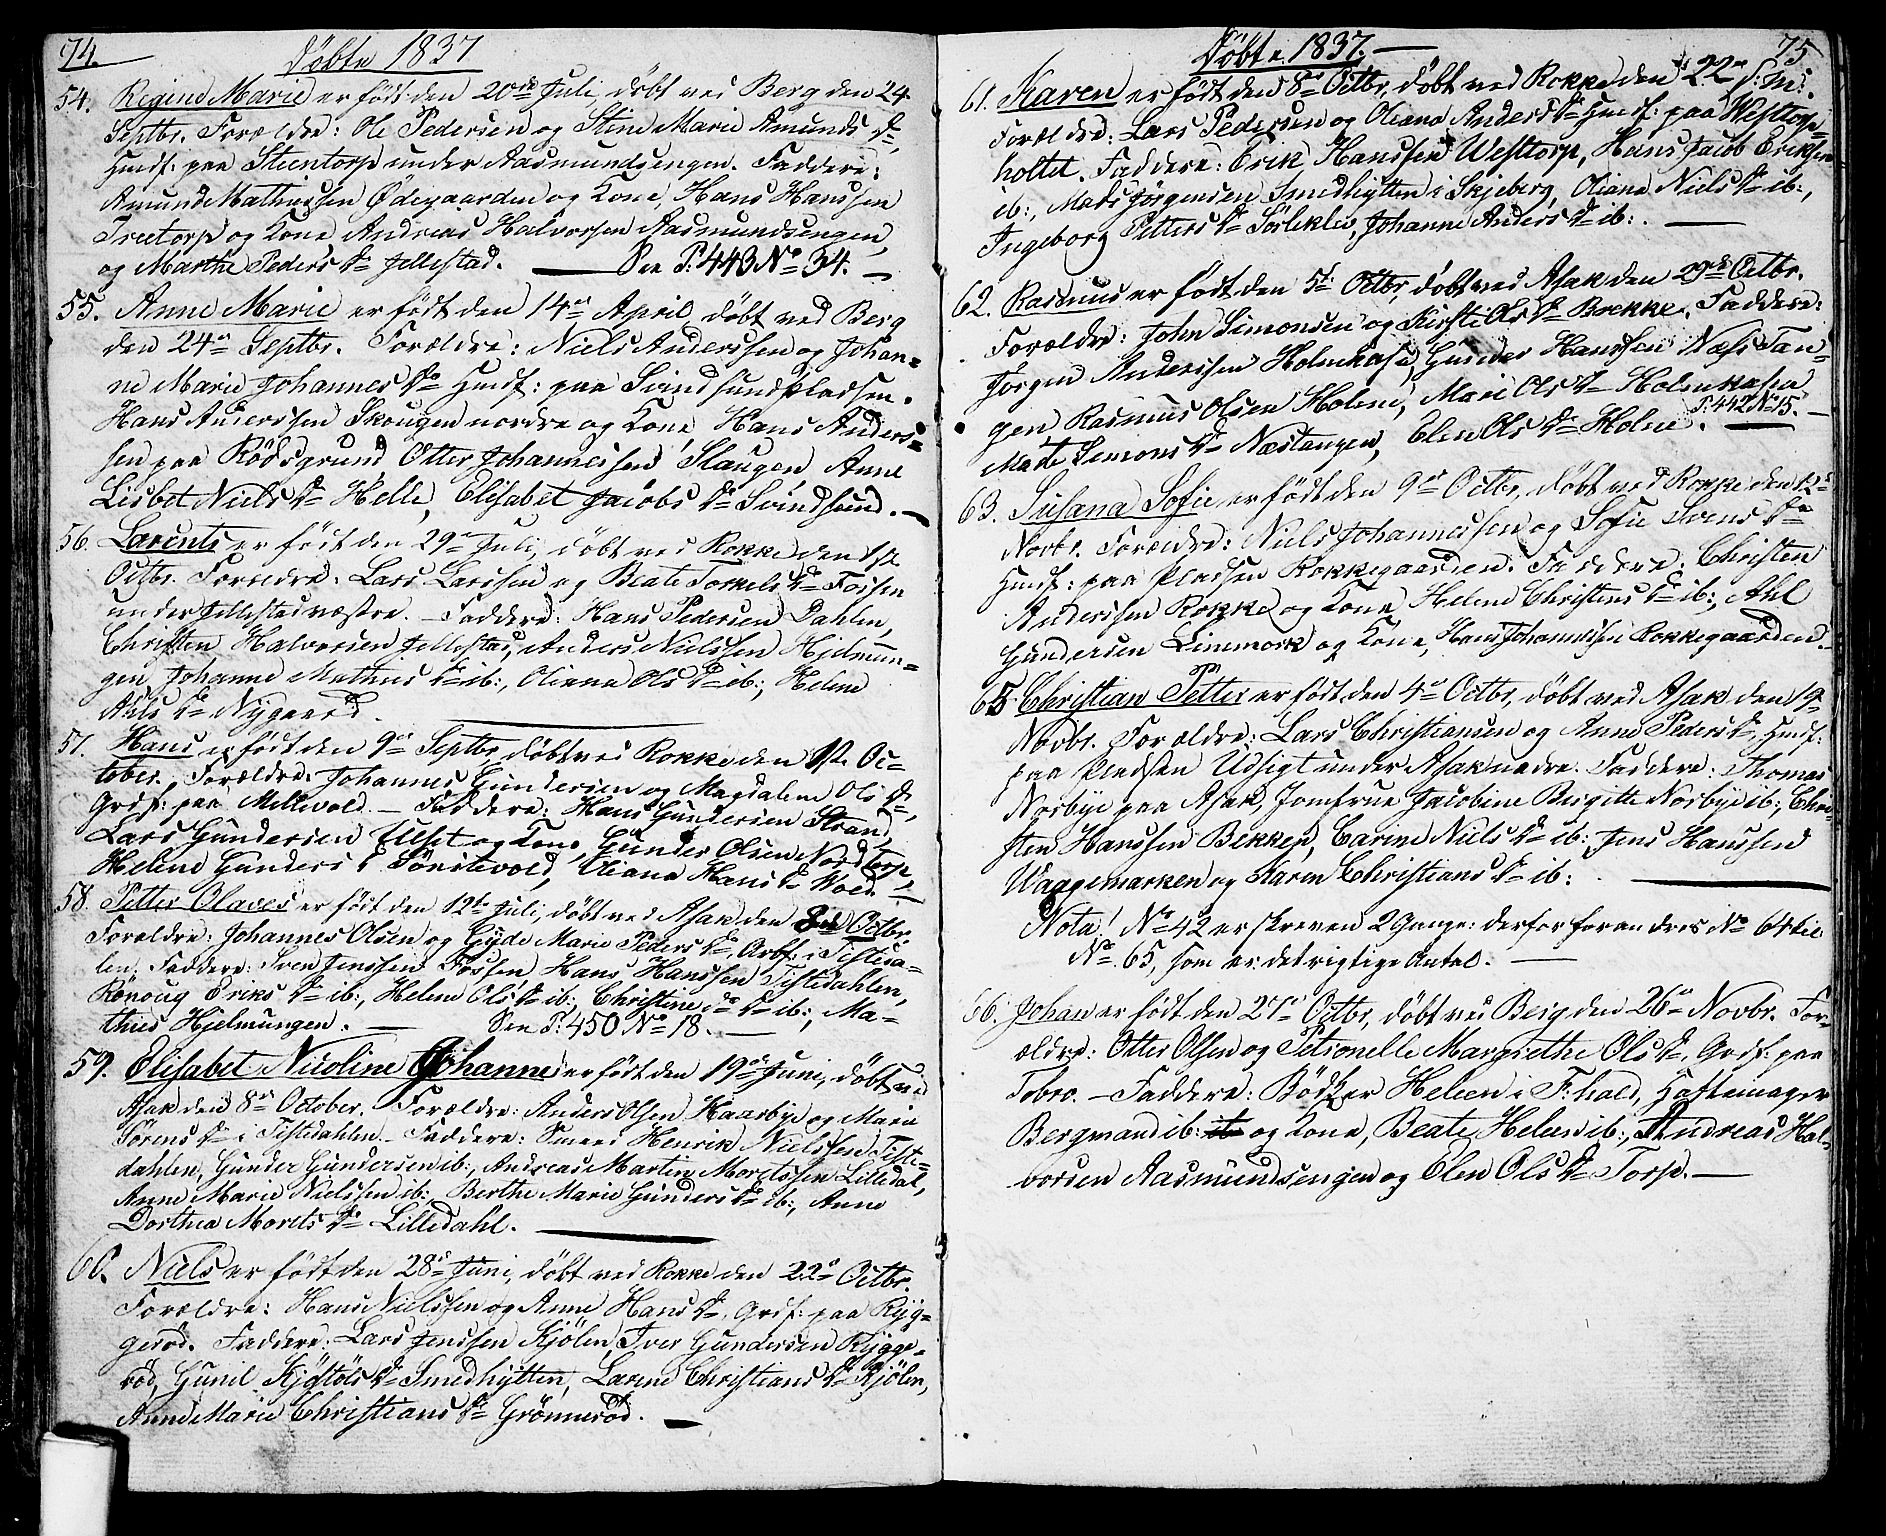 74.
Döbte 1837
54. Regine Marie er födt den 20de Juli, döbt ved Berg den 24
Septbr. Forældre: Ole Pedersen og Stine Marie Amunds Dr
Husf: paa Steentorp under Aasmundsengen. Faddere:
Amund Mathissen Ödegaarden og Kone, Hans Hanssen
Treetorp og Kone Andreas Halvorsen Aasmundsengen,
og Marthe Peders Dr Jellestad. See P: 443 No 34.
55. Anne Marie er födt den 14de April, döbt ved Berg
den 24de Septbr. Forældre: Niels Anderssen og Johan-
ne Marie Johannes Dr Husf: paa Svindsundpladsen.
Hans Anderssen Skougen nordre og Kone Hans Anders-
sen paa Rödsgrund, Otter Johannessen Slaugen, Anne
Lisbet Niels Dr Helle, Elisabet Jacobs Dr Svindsund.
56. Larents er födt den 29de Juli, döbt ved Rokke den 1st
Octbr. Foreldre: Lars Larssen og Beate Torkels Dr Fossen
under Jellestad væstre. Faddere: Hans Pedersen Dahlen,
Christen Halvorsen Jellestad, Anders Nielssen Hjelmun-
gen, Johanne Mathias Dr ib:, Oliana Ols Dr ib:, Helene
Nils Dr Nygaard.
57. Hans er födt den 9de Septbr, döbt ved Rokke den 1st Oc-
tober. Forældre: Johannes Gundersen og Magdalene Ols Dr,
Grdf: paa Mellevold. Faddere: Hans Gundersen Strand,
Lars Gundersen Ulset og Kone, Gunder Olsen Nordtorp,
Helene Gunders D Sönstevold, Oliana Hans Dr Wold.
58. Petter Olaves er födt den 12te Juli, döbt ved Asak den 8de Octbr
Forældre: Johannes Olsen og Gyde Marie Peders Dr, Arbf: i Tisteda-
len. Faddere: Sven Jenssen Fossen, Hans Hanssen Tistedahlen,
Rönoug Eriks Dr ib:, Helene Ols Dr ib:, Christine do Dr ib:, Ma-
thies Hjelmungen. See P: 450 No 18.
59. Elisabet Nicoline Johanne er födt den 19de Juni, döbt ved
Asak den 8de October. Forældre: Anders Olsen Haarbye og Maria
Sörens Dr i Tistedahlen. Faddere: Smeed Henrik Nielssen Tiste-
dahlen, Gunder Gundersen ib:, Andreas Martin Moretssen Lilledal,
Anne Marie Nielssen ib:, Berthe Marie Gunders Dr ib:, Anne
Dorthea Morets Dr Lilledahl.
60. Niels er födt den 28de Juni, döbt ved Rokke den 22de Octbr.
Forældre: Hans Nielssen og Anne Hans Dr, Grdf: paa Ryg-
geröd. Faddere: Lars Jenssen Kjölen, Iver Gundersen Rygge-
röd, Gunil Kjöstöls Dr Smedhytten, Larine Christians Dr Kjölen,
Anne Marie Christians Dr Grönneröd.
75
Döbte 1837.
61. Karen er födt den 8de Octbr, döbt ved Rokke den 22de s: m:
Forældre: Lars Pedersen og Oliana Anders Dr Husf: paa Westtorp-
holtet. Faddere: Erik Hanssen Westtorp, Hans Jacob Eriksen
ib:, Mads Jörgensen Smedhytten i Skjeberg, Oliana Niels Dr ib:,
Ingeborg Petters Dr Sörleklev, Johanne Anders Dr ib:.
62. Rasmus er födt den 5te Octbr, döbt ved Asak den 29de Octbr.
Forældre: John Simonsen og Kirsti Ols Dr Brekke. Faddere:
Jörgen Anderssen Holenkasa, Gunder Hanssen Næstan-
gen Rasmus Olsen Holene, Mari Ols Dr Holenkasen
Mate Simons Dr Næstangen, Elen Ols Dr Holene. P: 442 No 15.
63. Susana Sofie er födt den 9de Octbr, döbt ved Rokke den 12te
Novbr. Foreldre: Niels Johannessen og Sofie Svens Dr
Husf: paa Pladsen Rokkegaarden. Faddere: Christen
Anderssen Rokke og Kone, Helene Christens Dr ib:, Ahl
Gundersen Linnmork og Kone, Hans Johannessen Rokkegaarden.
65. Christian Petter er födt den 4de Octbr, döbt ved Asak den 19
Novbr. Forældre: Lars Christiansen og Anne Peders Dr, Husf:
paa Pladsen Udsigt under Asak nedre. Faddere: Thomas
Norbye paa Asak, Jomfrue Jacobine Birgitte Norbye ib:, Chri-
sten Hanssen Bekken, Carine Niels Dr ib: Jens Hanssen
Waagemarken og Karen Christians Dr ib:
Nota! No 42 er skreven 2 Gange: derfor forandres No 64 til
No 65, som er det rigtige Antal.
66. Johan er födt den 27de Octbr, döbt ved Berg den 26de Novbr. For-
ældre: Otter Olsen og Petronelle Margrethe Ols Dr, Grdf: paa
Torp. Faddere: Bödker Heleen i F:hald, Hattemager
Bergmand ib: og Kone, Beate Heleen ib:, Andreas Hal-
vorsen Aasmundsengen og Elen Ols Dr Torp.